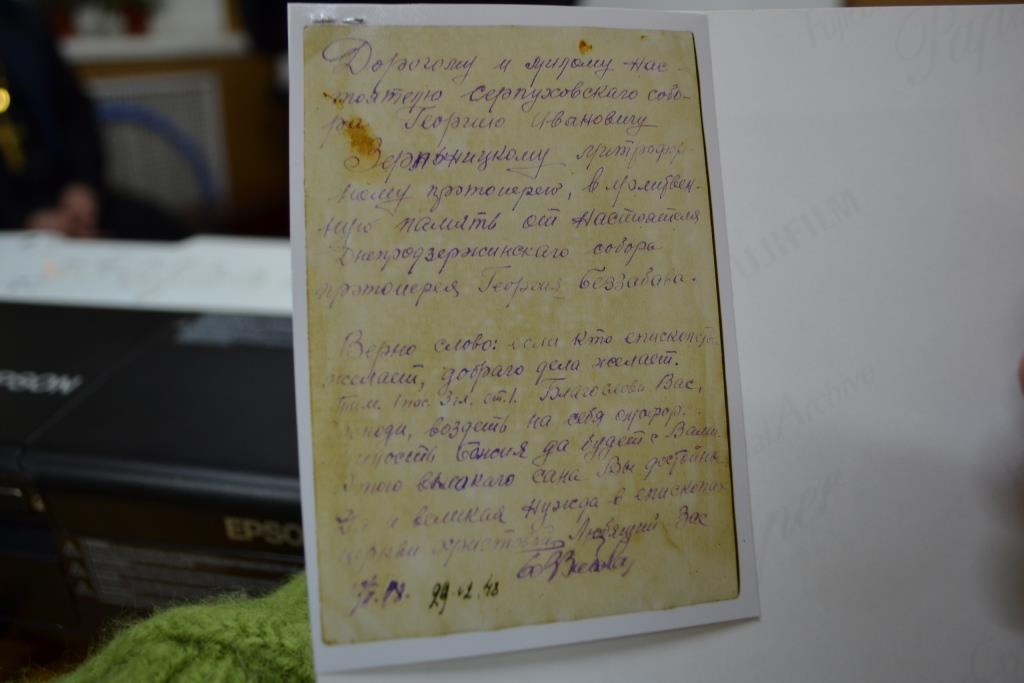 Дорогому и милому нас-
тоятелю серпуховскаго собо-
ра Георгию Ивановичу
митрофор-
ному протоиерею, в молитвен-
ную память от настоятеля
Днепродзержинскаго собора
протоиерея Георгия Беззабава.
Верно слово: если кто епископства
желает, добраго дела желает.
Тим. 1 пос. 3 гл. ст. 1. Благослови Вас,
Господи, воздеть на себя омофор.
Милость Божия да будет с Вами.
Этого великаго сана Вы достойны.
Да и великая нужда в епископах
церкви христовой. Любящий Вас
29.12.48
EPSON
EPSON
FUJIFILM
Archive
Paper